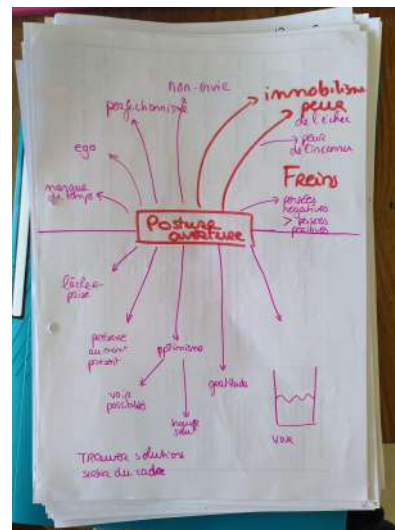 non-envie
perfectionnisme
immobilisme
peur
de l'échec
peur
de l'inconnu
ego
Freins
manque
de temps
pensées
négatives
> pensées
positives
Posture
ouverture
lâcher
prise
présence
au moment
présent
optimisme
gratitude
voir
possibles
voir
TROUVER solutions
sortir du cadre